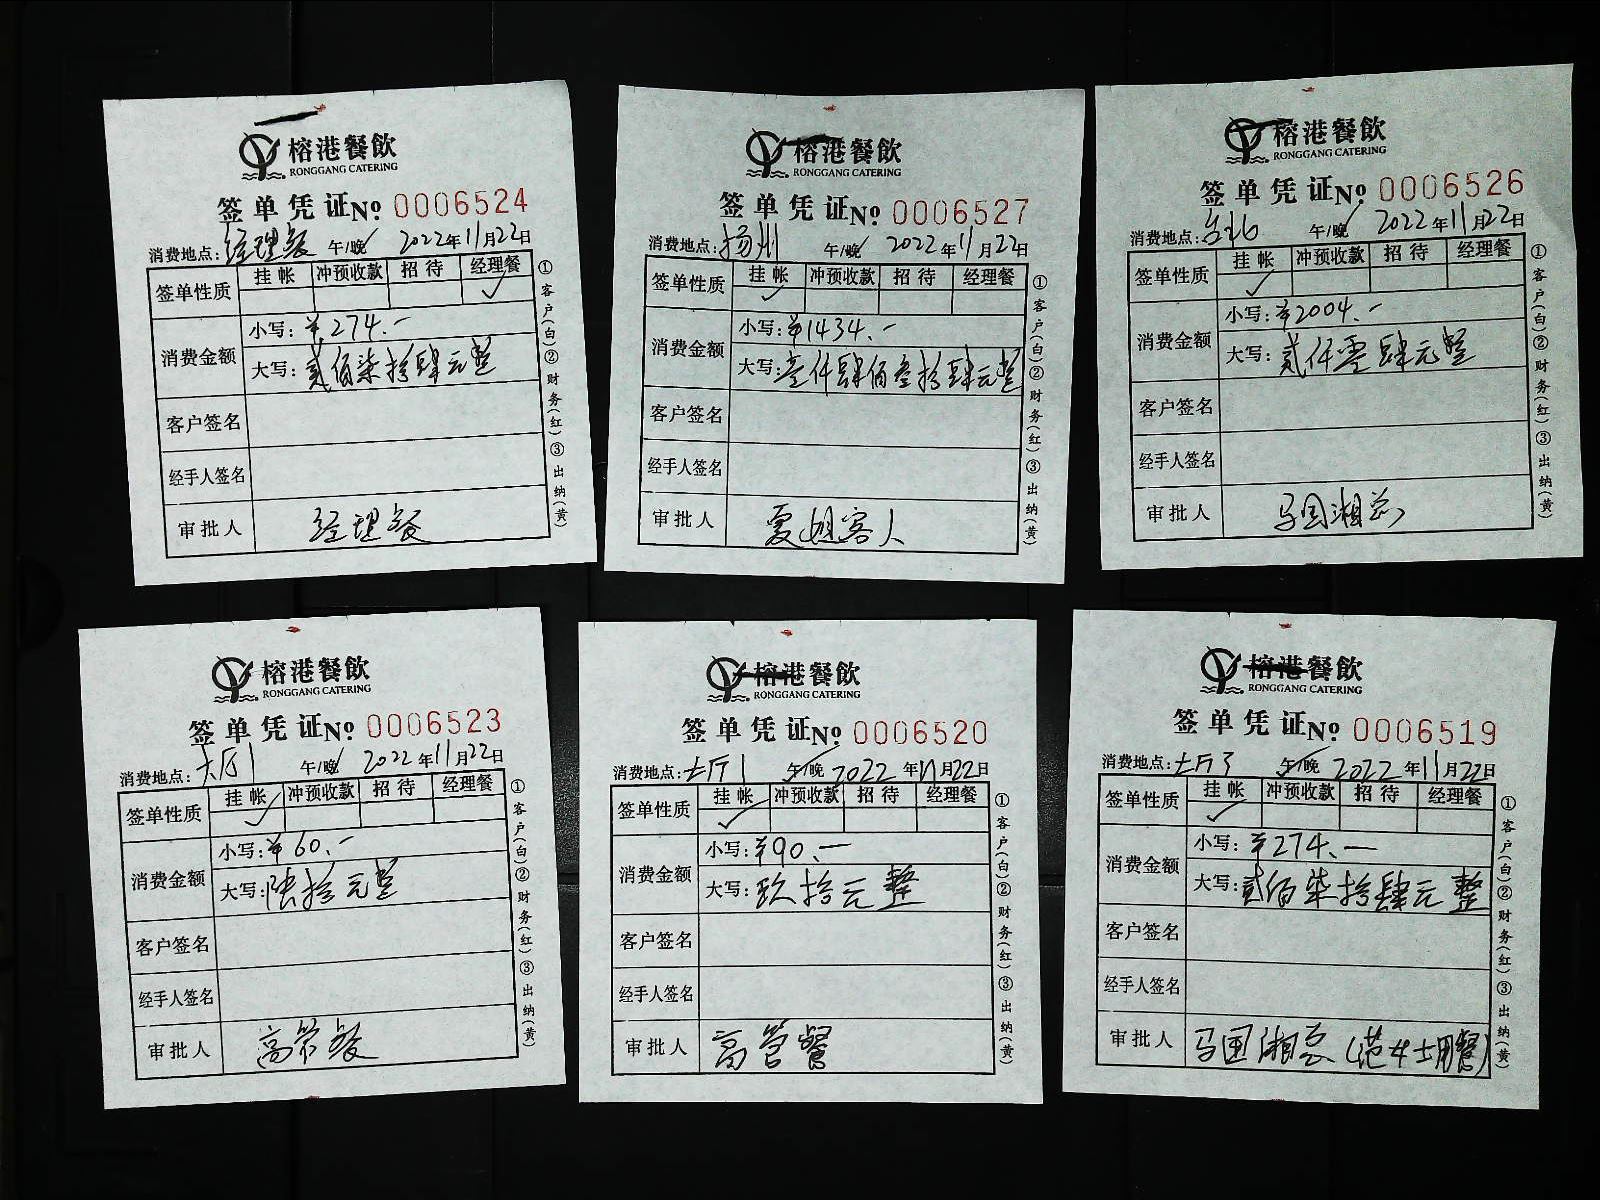 榕港餐飲
RONGGANG CATERING
签单凭证 No 0006524
消费地点：经理餐 午/晚✓ 2022年11月22日
签单性质 挂帐 冲预收款 招待 经理餐
✓
消费金额 小写：¥274.-
大写：贰佰柒拾肆元整
客户签名
经手人签名
审批人 经理餐
①客户(白)②财务(红)③出纳(黄)
榕港餐飲
RONGGANG CATERING
签单凭证 No 0006527
消费地点：扬州 午/晚✓ 2022年11月22日
签单性质 挂帐 冲预收款 招待 经理餐
✓
消费金额 小写：¥1434.-
大写：壹仟肆佰叁拾肆元整
客户签名
经手人签名
审批人 夏姐客人
①客户(白)②财务(红)③出纳(黄)
榕港餐飲
RONGGANG CATERING
签单凭证 No 0006526
消费地点：台北 午/晚✓ 2022年11月22日
签单性质 挂帐 冲预收款 招待 经理餐
✓
消费金额 小写：¥2004.-
大写：贰仟零肆元整
客户签名
经手人签名
审批人 马国湘总
①客户(白)②财务(红)③出纳(黄)
榕港餐飲
RONGGANG CATERING
签单凭证 No 0006523
消费地点：大厅1 午/晚✓ 2022年11月22日
签单性质 挂帐 冲预收款 招待 经理餐
✓
消费金额 小写：¥60.-
大写：陆拾元整
客户签名
经手人签名
审批人 高管餐
①客户(白)②财务(红)③出纳(黄)
榕港餐飲
RONGGANG CATERING
签单凭证 No 0006520
消费地点：大厅1 午✓/晚 2022年11月22日
签单性质 挂帐 冲预收款 招待 经理餐
✓
消费金额 小写：¥90.—
大写：玖拾元整
客户签名
经手人签名
审批人 高管餐
①客户(白)②财务(红)③出纳(黄)
榕港餐飲
RONGGANG CATERING
签单凭证 No 0006519
消费地点：大厅3 午✓/晚 2022年11月22日
签单性质 挂帐 冲预收款 招待 经理餐
✓
消费金额 小写：¥274.—
大写：贰佰柒拾肆元整
客户签名
经手人签名
审批人 马国湘总(范女士用餐)
①客户(白)②财务(红)③出纳(黄)